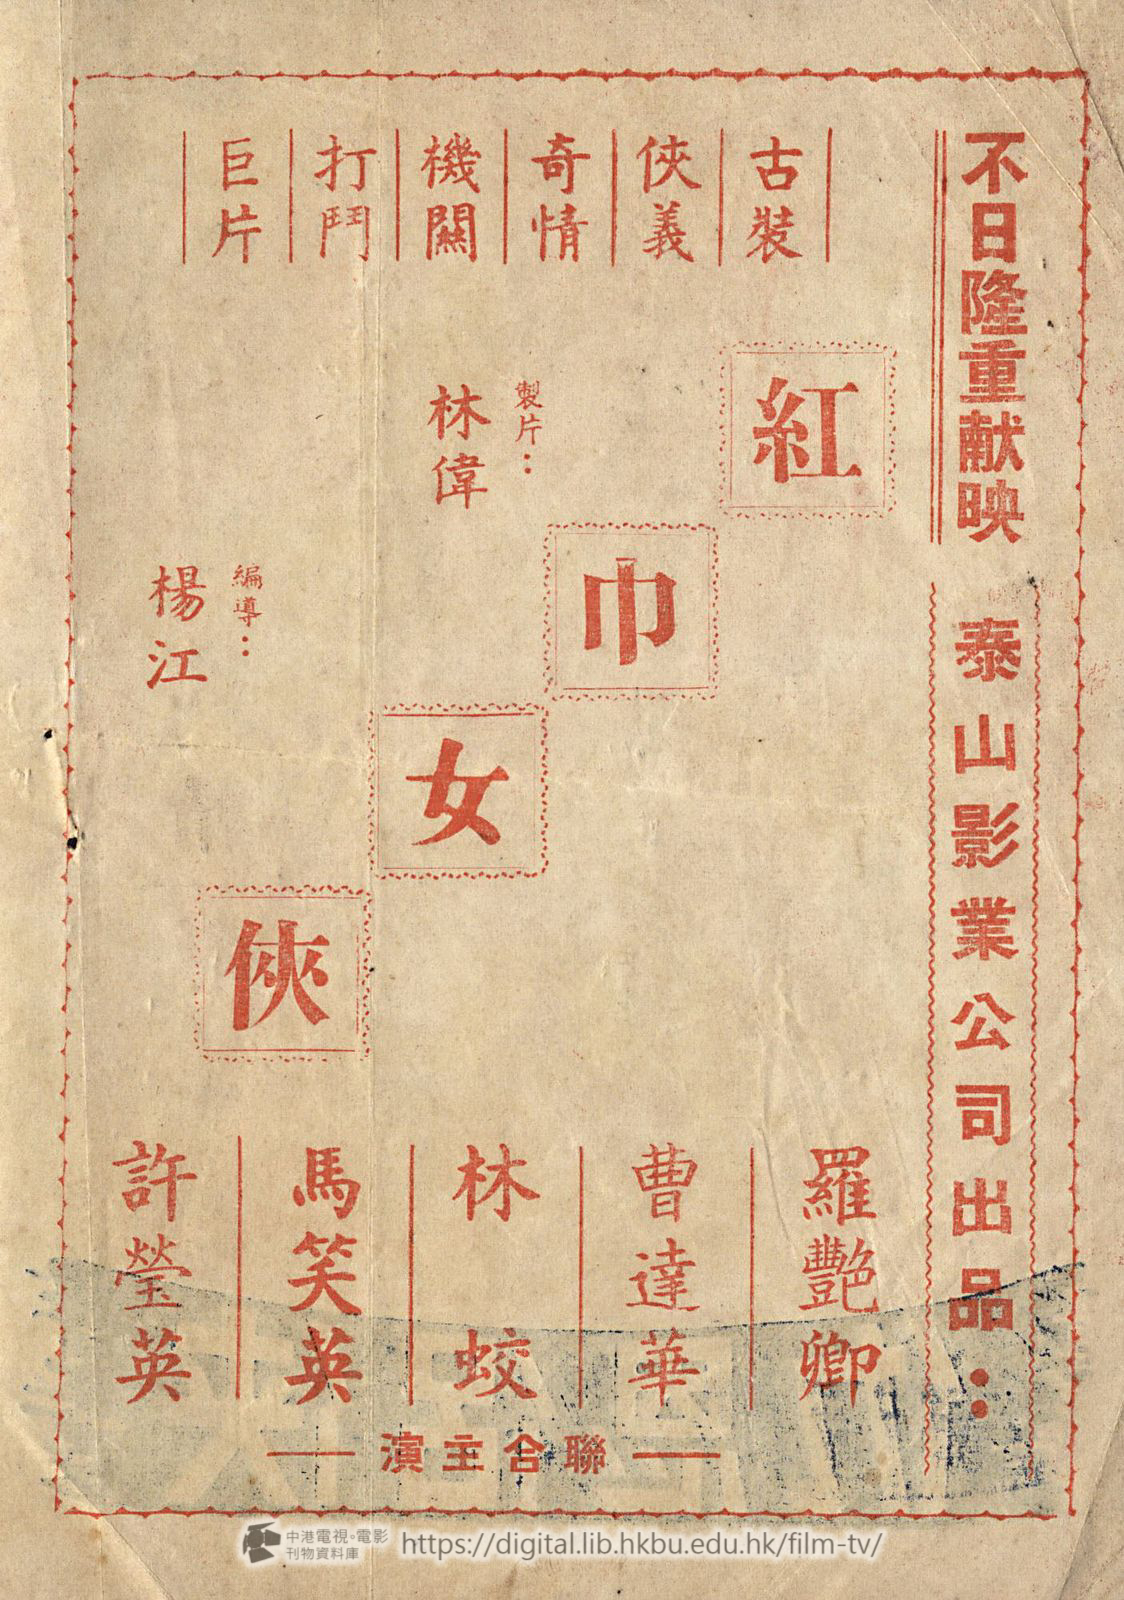 不日隆重献映
泰山影業公司出品：
古裝
俠義
奇情
機關
打鬥
巨片
紅巾女俠
製片：
林偉
編導：
楊江
羅艷卿
曹達華
林蛟
馬笑英
許瑩英
聯合主演
中港電視·電影
刊物資料庫
https://digital.lib.hkbu.edu.hk/film-tv/